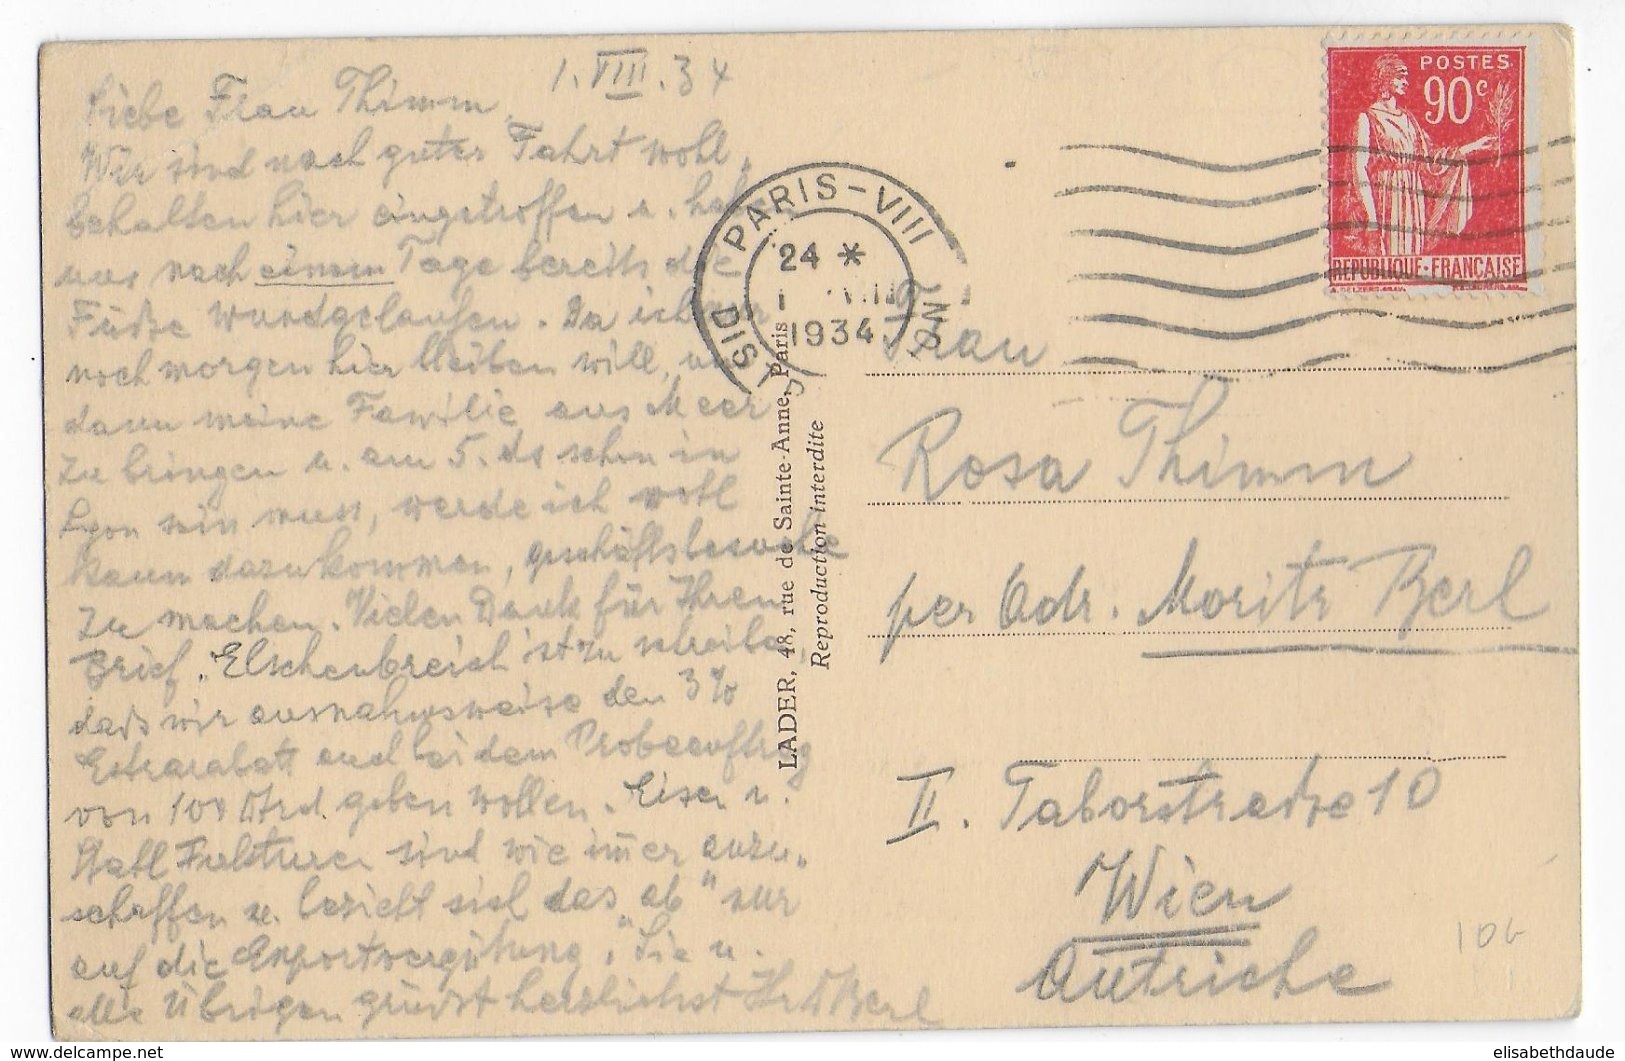 1. VIII. 34
Liebe Frau Thimm,
Wir sind nach guter Fahrt wohl,
behalten hier eingetroffen u. haben
uns nach einem Tage bereits die
Füsse wundgelaufen. Da ich nur
noch morgen hier bleiben will, um
dann meine Familie ans Meer
zu bringen u. am 5. ds schon in
Lyon sein muss, werde ich wohl
kaum dazu kommen, geschäftsbesuche
zu machen. Vielen Dank für Ihren
Brief. Elschenbreich ist zu schreiben,
dass wir ausnahmsweise den 3%
Extrarabatt auch bei dem Probeauftrag
von 100 geben wollen. Eisen u.
Stahl sind wie immer anzu-
schaffen u. bezieht sich das "ab" nur
auf die Exportvergütung. Sie u.
alle Übrigen grüsst herzlichst Ihr Berl
PARIS-VIII
24 *
1934
DIST
LADER, 48, rue de Sainte-Anne, Paris
Reproduction interdite
POSTES
90c
REPUBLIQUE·FRANÇAISE
Frau
Rosa Thimm
per Adr. Moritz Berl
II. Taborstrasse 10
Wien
Autriche
elisabethdaude
www.delcampe.net